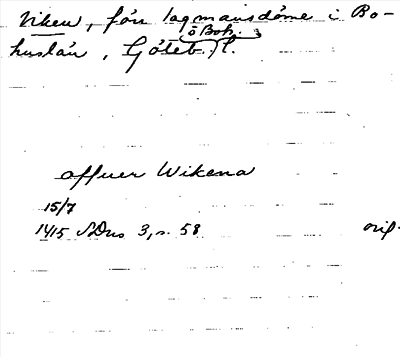 Viken, förr lagmansdöme i Bo-
o Boh.
huslän, Göteb. l.
affuer Wikena
15/7
1415 SDns 3, s. 58 orig.